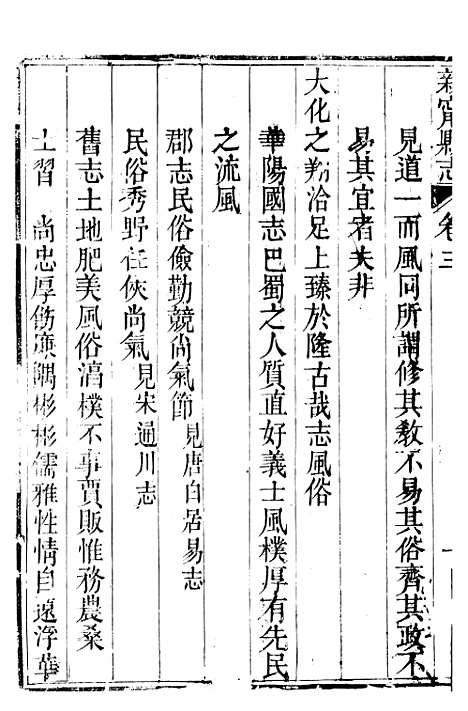 新甯縣志 卷三 一
見道一而風同所謂修其教不易其俗齊其政不
易其宜者夫非
大化之翔洽足上臻於隆古哉志風俗
華陽國志巴蜀之人質直好義士風樸厚有先民
之流風
郡志民俗儉勤競尚氣節見唐白居易志
民俗秀野任俠尚氣見宋通川志
舊志土地肥美風俗湻樸不事賈販惟務農桑
士習 尚忠厚飭廉隅彬彬儒雅性情自遠浮華